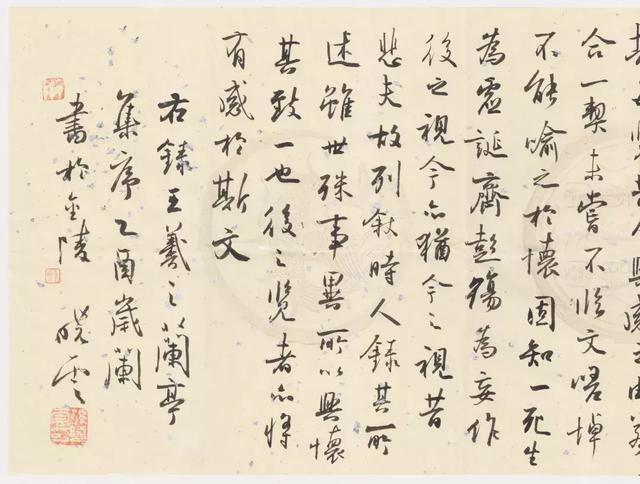 昔人興感之由若
合一契未嘗不臨文嗟悼
不能喻之於懷固知一死生
為虛誕齊彭殤為妄作
後之視今亦猶今之視昔
悲夫故列敘時人錄其所
述雖世殊事異所以興懷
其致一也後之覽者亦將
有感於斯文
右錄王羲之蘭亭
集序乙酉歲蘭
書於金陵 曉雲